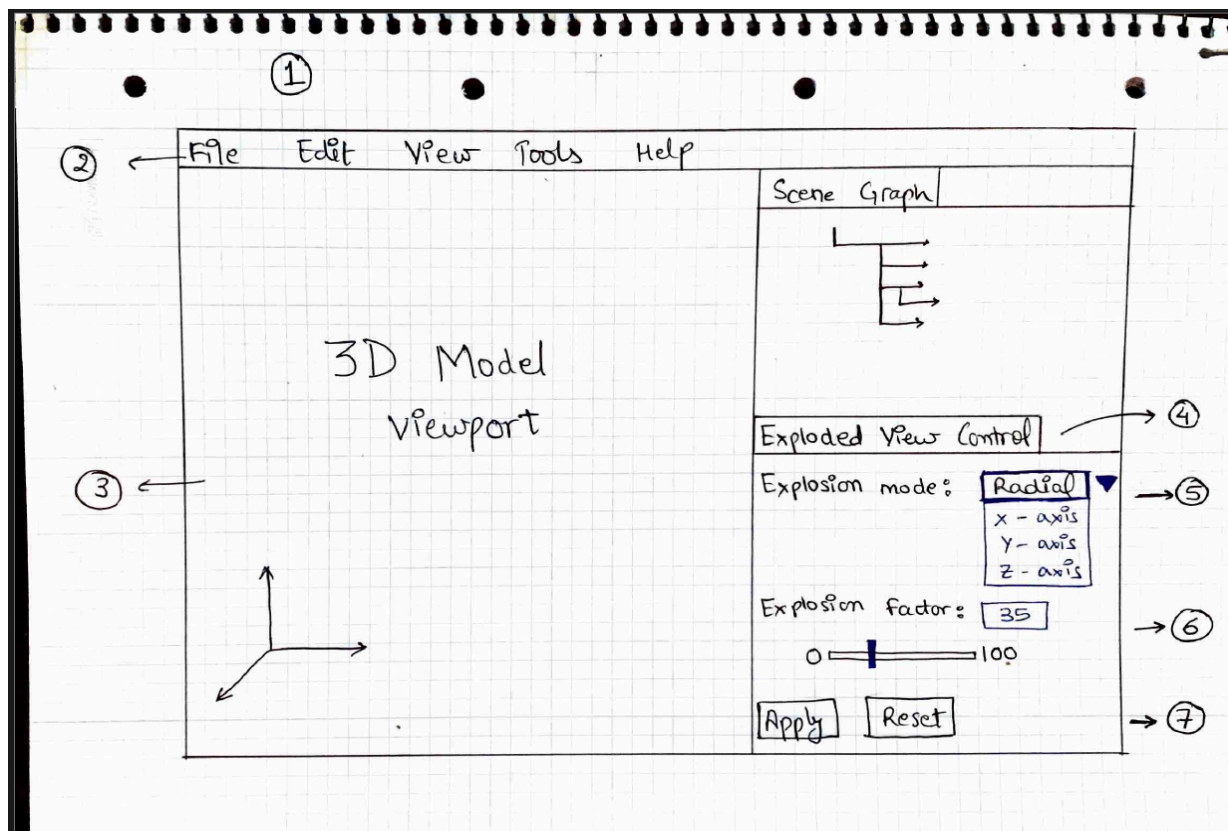 1
2
File Edit View Tools Help
Scene Graph
3D Model
Viewport
Exploded View Control
4
3
Explosion mode: Radial
5
X - axis
Y - axis
Z - axis
Explosion factor: 35
6
0 100
Apply Reset
7